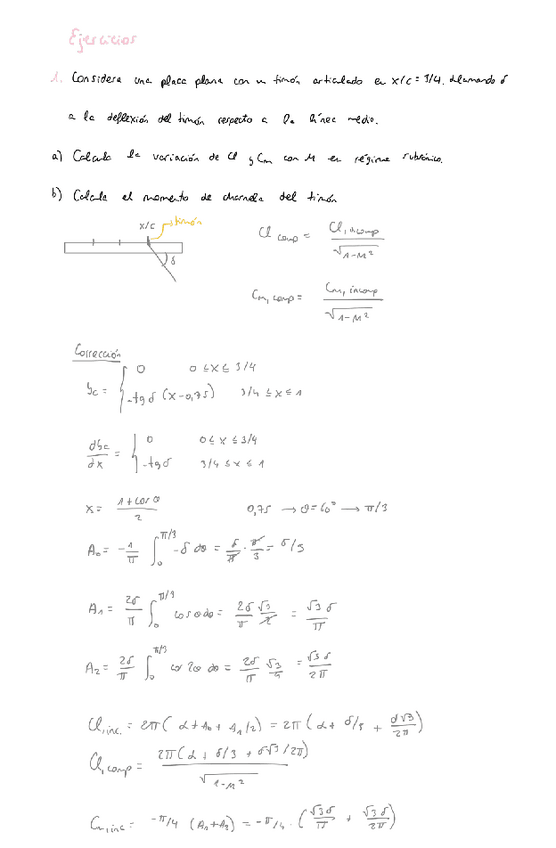 Ejercicios
1. Considera una placa plana con un timón articulado en x/c = 3/4. Llamando δ
a la deflexión del timón respecto a la línea media.
a) Calcula la variación de Cl y Cm con M en régimen subsónico.
b) Calcula el momento de charnela del timón
x/c → timón
δ
Cl comp = Cl, incomp / √1-M²
Cm, comp = Cm, incomp / √1-M²
Corrección
yc = { 0 0 ≤ x ≤ 3/4
-tg δ (x-0,75) 3/4 ≤ x ≤ 1
dyc/dx = { 0 0 ≤ x ≤ 3/4
-tg δ 3/4 ≤ x ≤ 1
x = 1+cos θ / 2 0,75 → θ = 60° → π/3
A₀ = -1/π ∫₀^π/3 -δ dθ = δ/π · π/3 = δ/3
A₁ = 2δ/π ∫₀^π/3 cos θ dθ = 2δ/π √3/2 = √3 δ/π
A₂ = 2δ/π ∫₀^π/3 cos 2θ dθ = 2δ/π √3/4 = √3 δ/2π
Cl, inc. = 2π(α + A₀ + A₁/2) = 2π(α + δ/3 + δ√3/2π)
Cl, comp = 2π(α + δ/3 + δ√3/2π) / √1-M²
Cm, inc = -π/4 (A₁+A₂) = -π/4 · (√3 δ/π + √3 δ/2π)